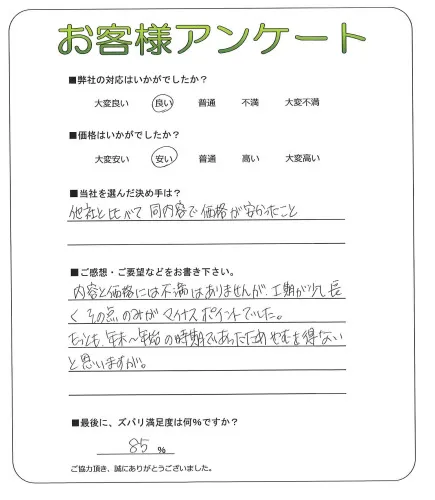 お客様アンケート
■弊社の対応はいかがでしたか?
大変良い 良い 普通 不満 大変不満
■価格はいかがでしたか?
大変安い 安い 普通 高い 大変高い
■当社を選んだ決め手は?
他社と比べて同内容で価格が安かったこと
■ご感想・ご要望などをお書き下さい。
内容と価格には不満はありませんが、工期が少し長
く その点のみがマイナスポイントでした。
もっとも、年末〜年始の時期であったためやむを得ない
と思いますが。
■最後に、ズバリ満足度は何%ですか?
85 %
ご協力頂き、誠にありがとうございました。